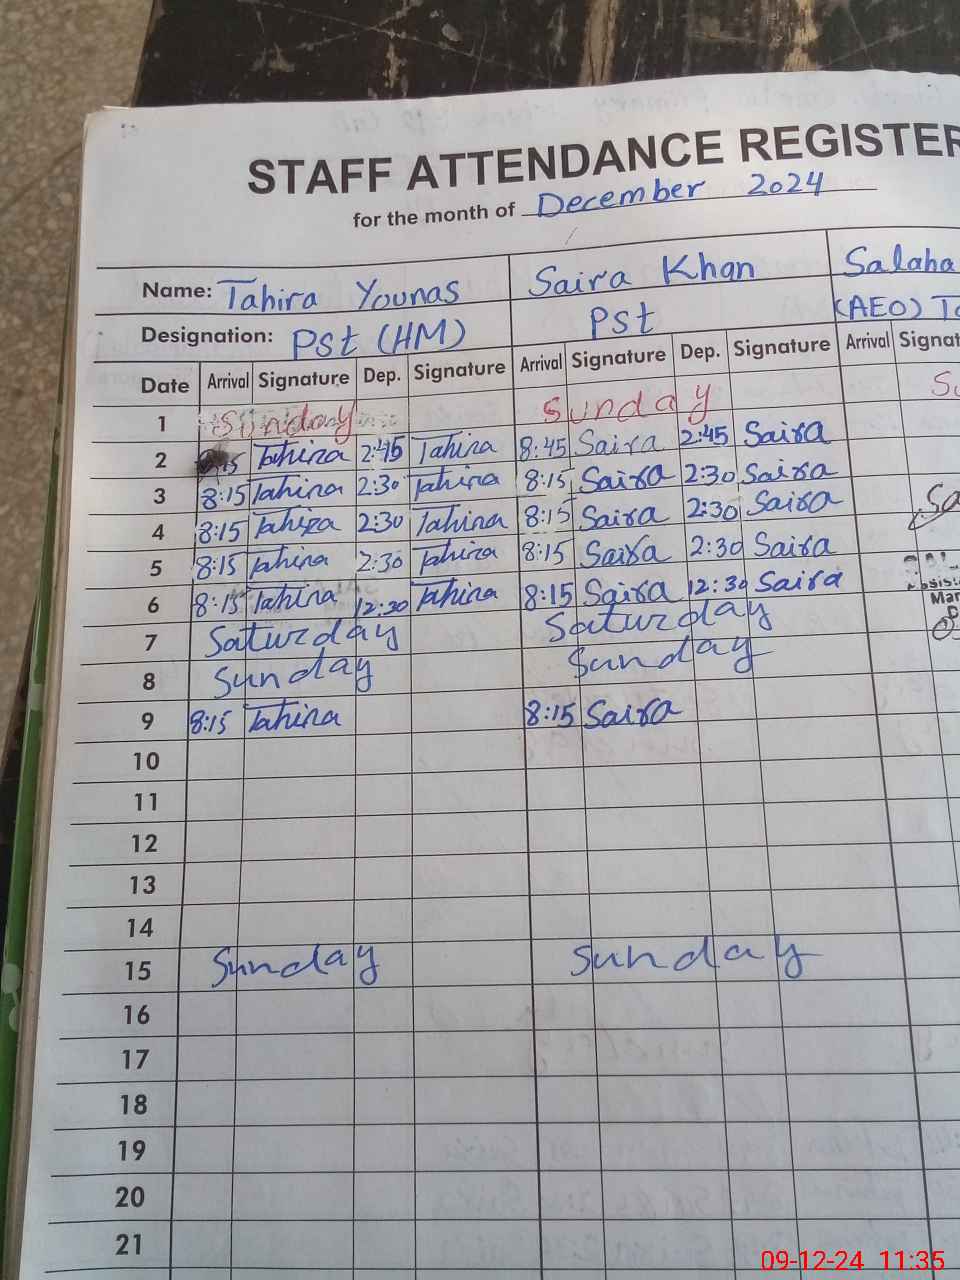 STAFF ATTENDANCE REGISTER
for the month of December 2024
Name: Tahira Younas Saira Khan Salaha
Designation: Pst (HM) Pst (AEO)
Date Arrival Signature Dep. Signature Arrival Signature Dep. Signature Arrival Signat
1 Sunday Sunday
2 Tahira 2:45 Tahira 8:45 Saira 2:45 Saira
3 8:15 Tahira 2:30 Tahira 8:15 Saira 2:30 Saira
4 8:15 Tahira 2:30 Tahira 8:15 Saira 2:30 Saira
5 8:15 Tahira 2:30 Tahira 8:15 Saira 2:30 Saira
6 8:15 Tahira 12:30 Tahira 8:15 Saira 12:30 Saira
7 Saturday Saturday
8 Sunday Sunday
9 8:15 Tahira 8:15 Saira
10
11
12
13
14
15 Sunday Sunday
16
17
18
19
20
21
09-12-24 11:35